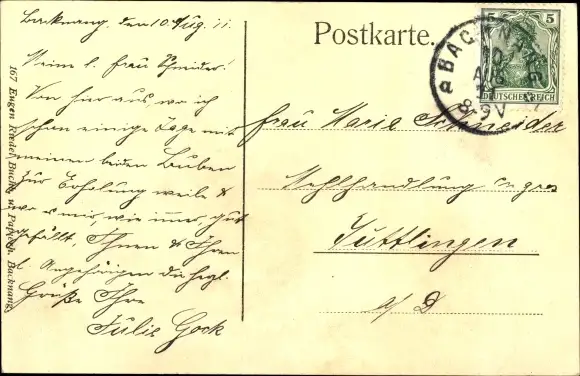 Backnang, den 10. Aug. 11.
Meine l. Frau Schneider!
Von hier aus, wo ich
schon einige Tage mit
meinen beiden Buben
zur Erholung weile &
wo es mir, wie immer, gut
gefällt, Ihnen & Ihren
l. Angehörigen die herzl.
Grüße Ihre
Julie Gock
167 Eugen Riedel, Buchh. u. Papierh. Backnang
Postkarte.
5 5
DEUTSCHES REICH
BACKNANG
10
AUG
11
8-9V
Frau Maria Schneider
Mehlhandlung en gros
Tuttlingen
a/D